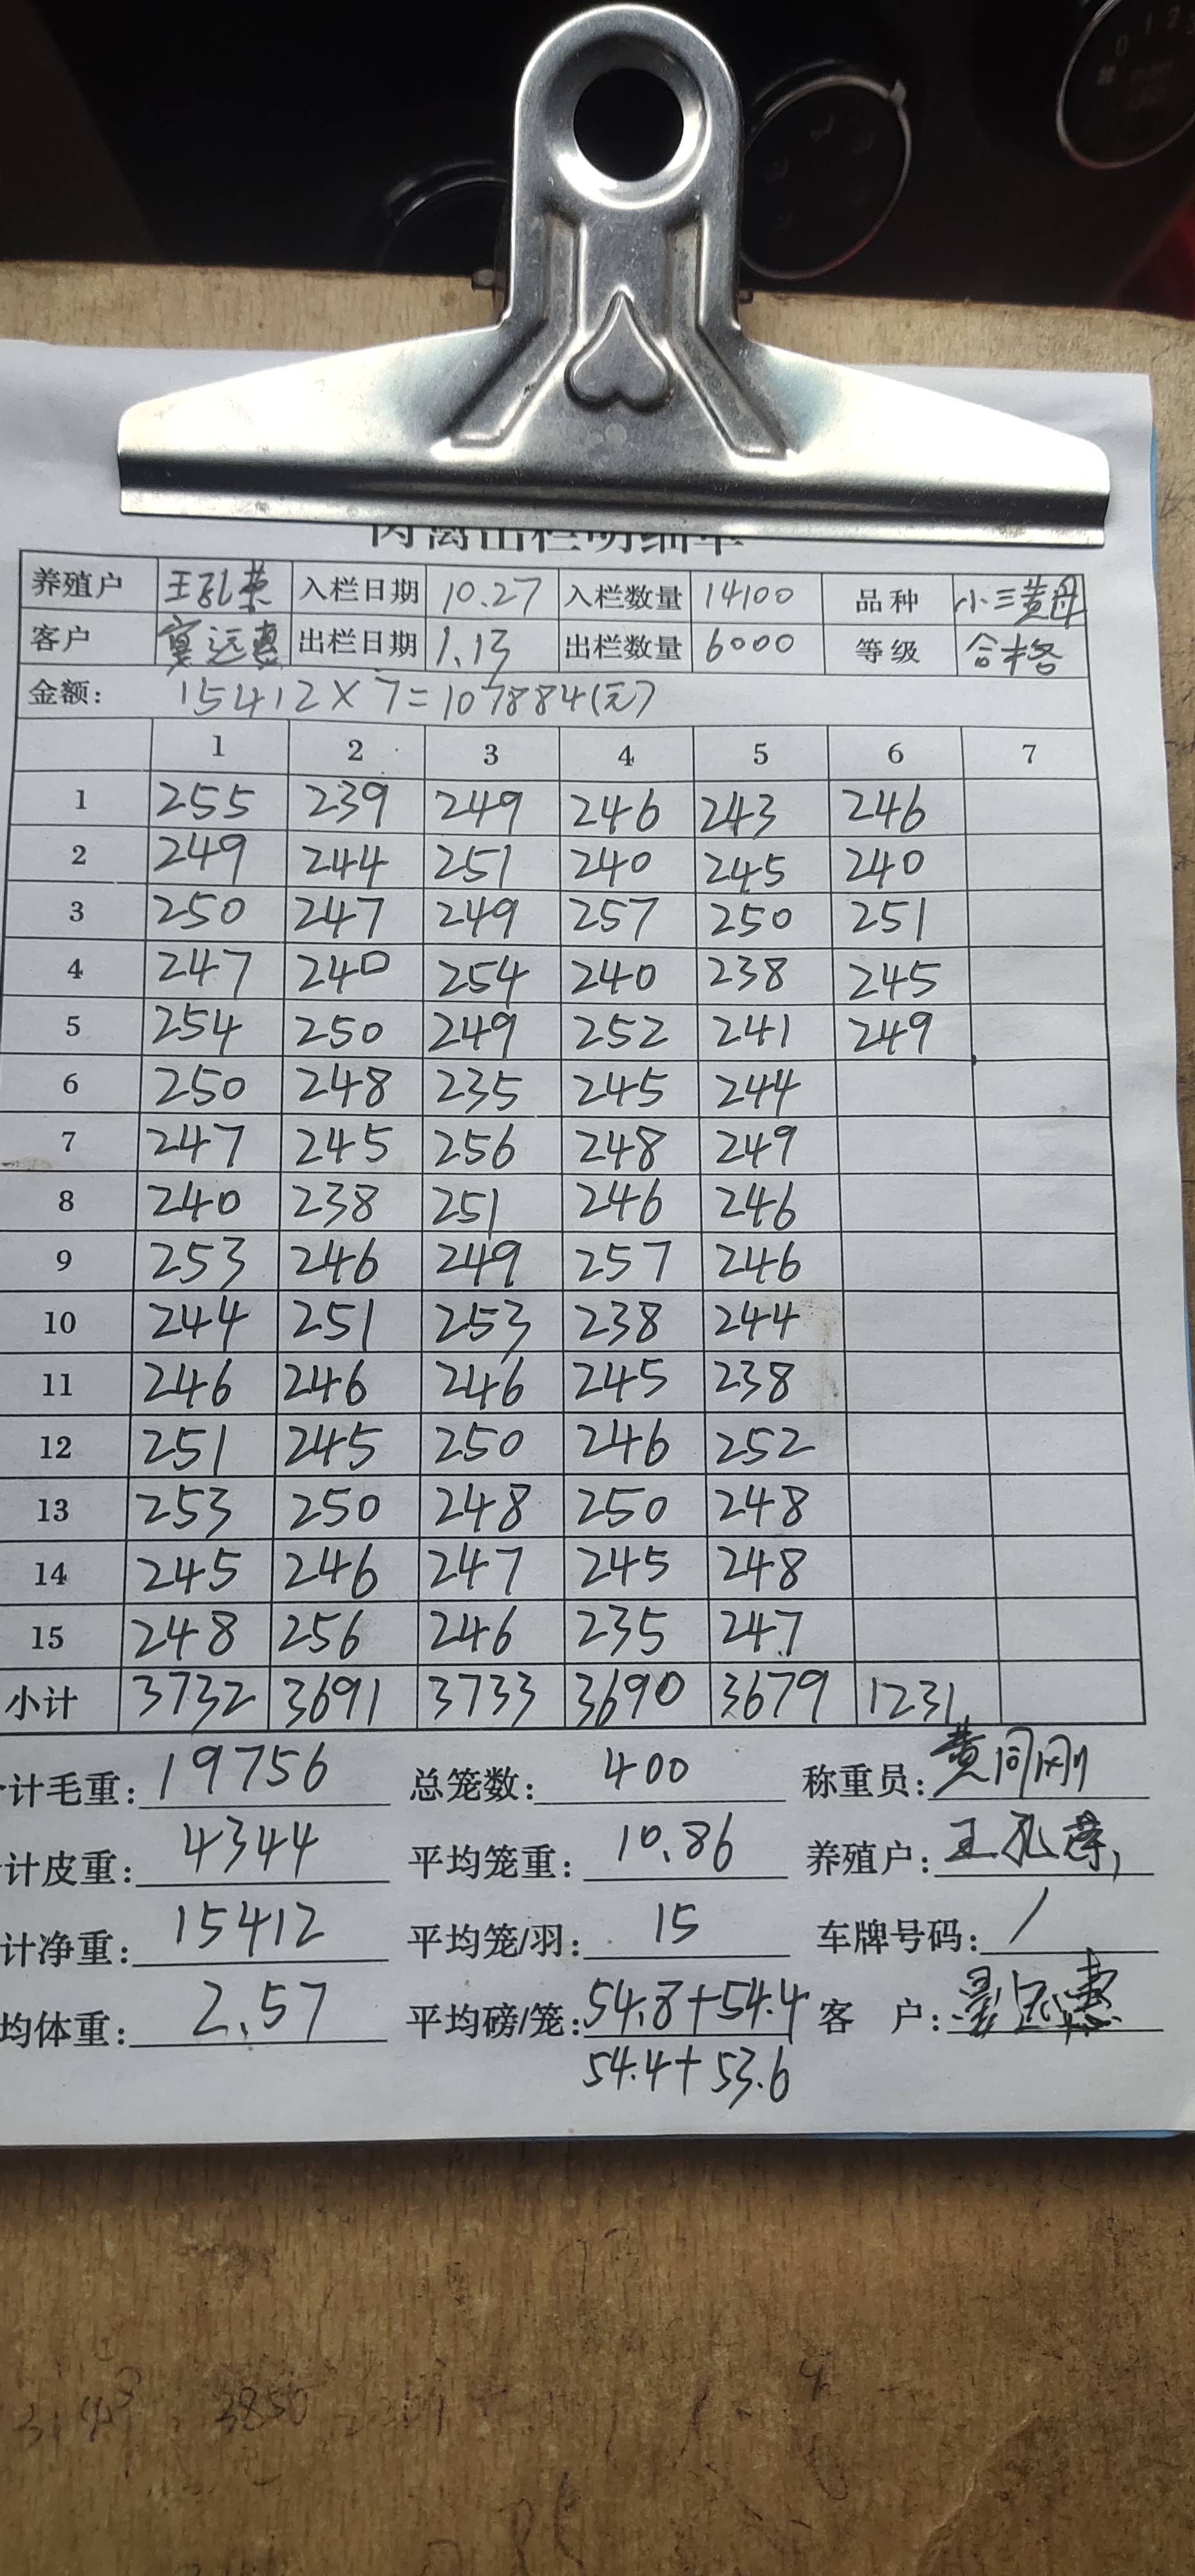 肉禽出栏明细单
养殖户 王孔荣 入栏日期 10.27 入栏数量 14100 品种 小三黄母
客户 远惠 出栏日期 1.13 出栏数量 6000 等级 合格
金额: 15412×7=107884(元)
1 2 3 4 5 6 7
1 255 239 249 246 243 246
2 249 244 251 240 245 240
3 250 247 249 257 250 251
4 247 240 254 240 238 245
5 254 250 249 252 241 249
6 250 248 235 245 244
7 247 245 256 248 249
8 240 238 251 246 246
9 253 246 249 257 246
10 244 251 253 238 244
11 246 246 246 245 238
12 251 245 250 246 252
13 253 250 248 250 248
14 245 246 247 245 248
15 248 256 246 235 247
小计 3732 3691 3733 3690 3679 1231
计毛重: 19756 总笼数: 400 称重员: 黄同刚
计皮重: 4344 平均笼重: 10.86 养殖户: 王孔荣
计净重: 15412 平均笼/羽: 15 车牌号码: /
均体重: 2.57 平均磅/笼: 54.8+54.4 客 户: 远惠
54.4+53.6